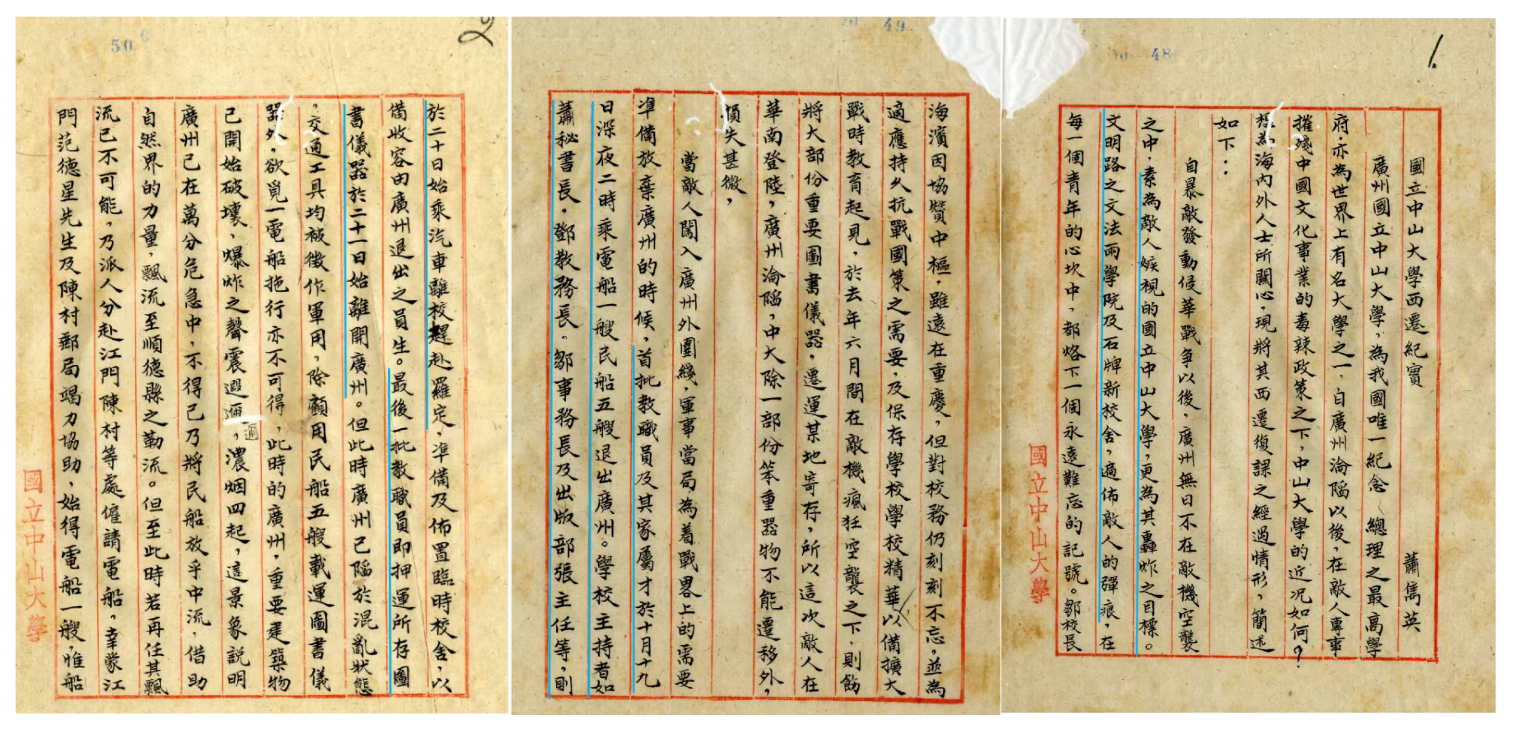 1.
48
國立中山大學西遷紀實
蕭雋英
廣州國立中山大學，為我國唯一紀念 總理之最高學
府，亦為世界上有名大學之一，自廣州淪陷以後，在敵人軍事
摧殘中國文化事業的毒辣政策之下，中山大學的近况如何？
想為海内外人士所關心，現將其西遷復課之經過情形，簡述
如下：
自暴敵發動侵華戰爭以後，廣州無日不在敵機空襲
之中，素為敵人嫉視的國立中山大學，更為其轟炸之目標。
文明路之文法兩學院及石牌新校舍，遍佈敵人的彈痕，在
每一個青年的心坎中，都烙下一個永遠難忘的記號。鄒校長
國立中山大學
49
海濱因協贊中樞，雖遠在重慶，但對校務仍刻刻不忘，並為
適應持久抗戰國策之需要，及保存學校學校精華以備擴大
戰時教育起見，於去年六月間在敵機瘋狂空襲之下，則飭
將大部份重要圖書儀器，遷運某地寄存，所以這次敵人在
華南登陸，廣州淪陷，中大除一部份笨重器物不能遷移外，
損失甚微，
當敵人闖入廣州外圍綫，軍事當局為着戰畧上的需要
準備放棄廣州的時候，首批教職員及其家屬才於十月十九
日深夜二時乘電船一艘民船五艘退出廣州。學校主持者如
蕭秘書長，鄧教務長，鄒事務長及出版部張主任等，則
2
50
於二十日始乘汽車離校趕赴羅定，準備及佈置臨時校舍，以
備收容由廣州退出之員生。最後一批教職員即押運所存圖
書儀器於二十一日始離開廣州。但此時廣州已陷於混亂狀態
，交通工具均被徵作軍用，除顧用民船五艘載運圖書儀
器外，欲覓一電船拖行亦不可得，此時的廣州，重要建築物
已開始破壞，爆炸之聲震遐邇，濃烟四起，這景象説明
廣州已在萬分危急中，不得已乃將民船放乎中流，借助
自然界的力量，飄流至順德縣之勒流。但至此時若再任其飄
流已不可能，乃派人分赴江門陳村等處僱請電船，幸蒙江
門范德星先生及陳村郵局竭力協助，始得電船一艘，惟船
國立中山大學